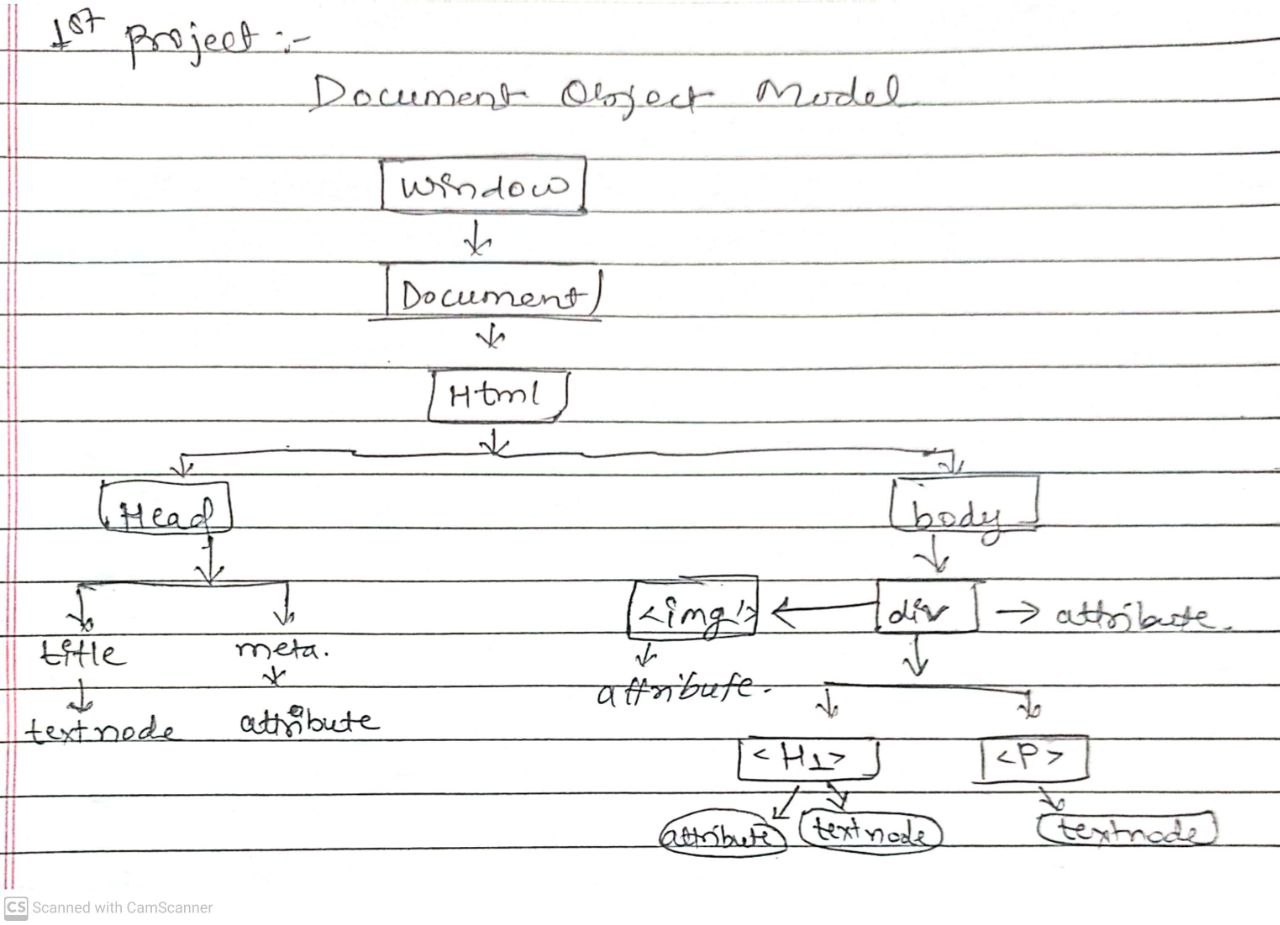 1st Project :-
Document Object Model
Window
Document
Html
Head body
<img> div attribute.
title meta.
attribute.
textnode attribute
<H1> <P>
attribute textnode textnode
CS Scanned with CamScanner